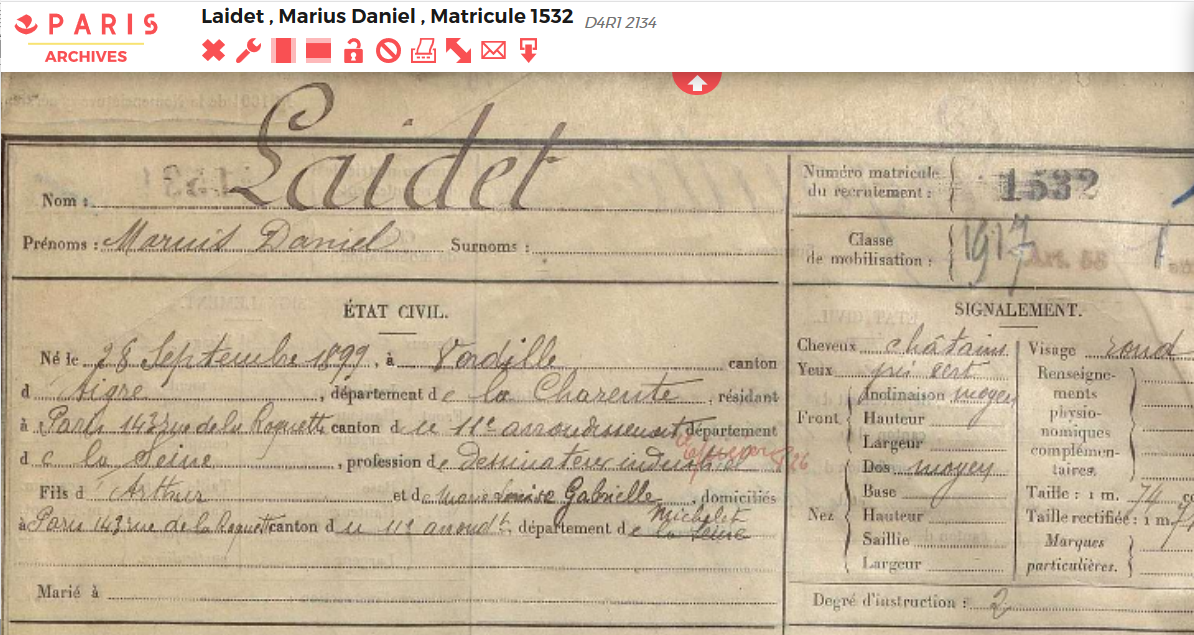 PARIS
ARCHIVES
Laidet , Marius Daniel , Matricule 1532 D4R1 2134
Laidet
Nom :
Prénoms : Marius Daniel Surnoms :
ÉTAT CIVIL.
Né le 28 Septembre 1899, à Verdille canton
d Aigre, département de la Charente, résidant
à Paris 143 rue de la Roquette canton du 11e arrondissement, département
de la Seine, profession de dessinateur industriel
Fils d Arthur et de Marie Louise Gabrielle, domiciliés
Michelet
à Paris 143 rue de la Roquette canton du 11e arrondt, département de la Seine
Marié à
Numéro matricule
du recrutement : 1532
Classe
de mobilisation : 1917
Art. 33
SIGNALEMENT.
Cheveux châtains
Yeux gris vert
Front
Inclinaison moyen
Hauteur
Largeur
Nez
Dos moyen
Base
Hauteur
Saillie
Largeur
Visage rond
Renseigne-
ments
physio-
nomiques
complémen-
taires.
Taille : 1 m. 74 c
Taille rectifiée : 1 m.
Marques
particulières.
Degré d'instruction : 2